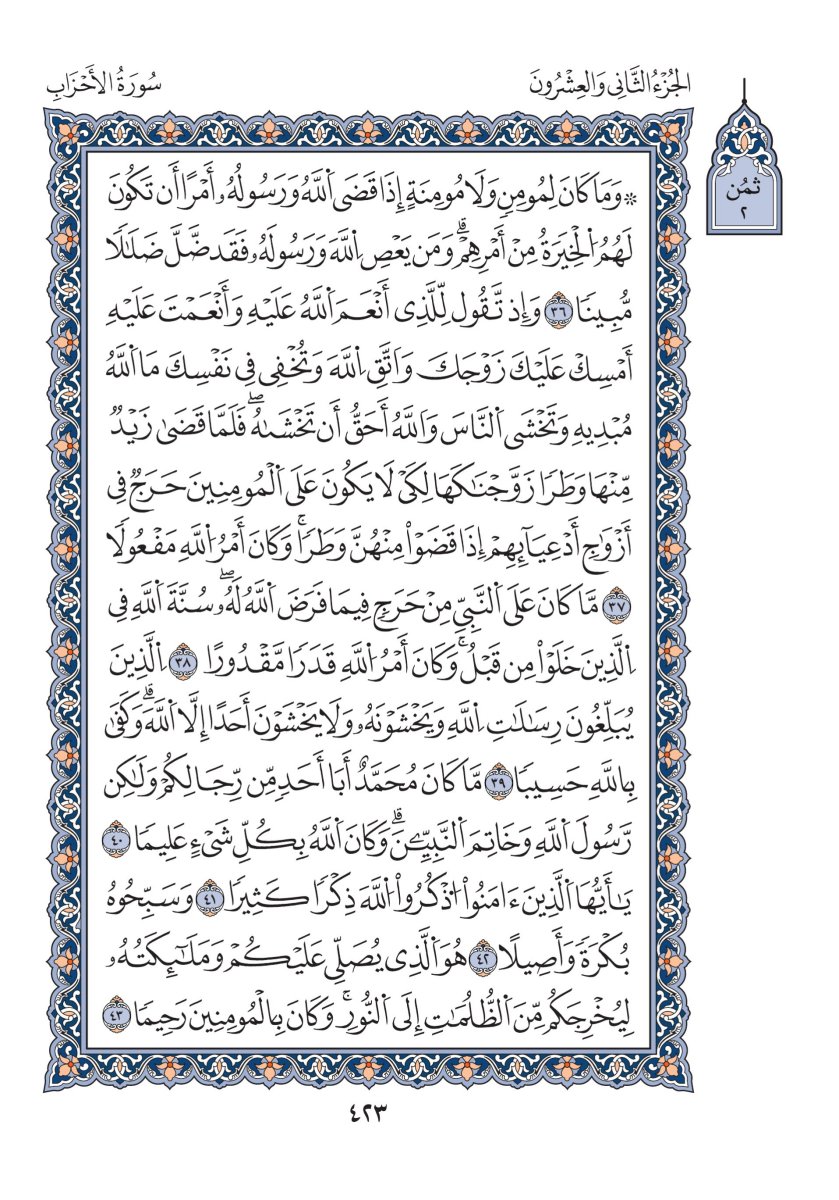 الجُزْءُ الثَّانِي وَالعِشْرُونَ
سُورَةُ الأَحْزَابِ
ثُمُن
٢
۞ وَمَا كَانَ لِمُومِنٖ وَلَا مُومِنَةٍ إِذَا قَضَى ٱللَّهُ وَرَسُولُهُۥ أَمۡرًا أَن تَكُونَ
لَهُمُ ٱلۡخِيَرَةُ مِنۡ أَمۡرِهِمۡۗ وَمَن يَعۡصِ ٱللَّهَ وَرَسُولَهُۥ فَقَد ضَّلَّ ضَلَٰلٗا
مُّبِينٗا ٣٦ وَإِذ تَّقُول لِّلَّذِي أَنۡعَمَ ٱللَّهُ عَلَيۡهِ وَأَنۡعَمۡتَ عَلَيۡهِ
أَمۡسِكۡ عَلَيۡكَ زَوۡجَكَ وَٱتَّقِ ٱللَّهَ وَتُخۡفِي فِي نَفۡسِكَ مَا ٱللَّهُ
مُبۡدِيهِ وَتَخۡشَى ٱلنَّاسَ وَٱللَّهُ أَحَقُّ أَن تَخۡشَىٰهُۖ فَلَمَّا قَضَىٰ زَيۡدٞ
مِّنۡهَا وَطَرٗا زَوَّجۡنَٰكَهَا لِكَيۡ لَا يَكُونَ عَلَى ٱلۡمُومِنِينَ حَرَجٞ فِي
أَزۡوَٰجِ أَدۡعِيَآئِهِمۡ إِذَا قَضَوۡاْ مِنۡهُنَّ وَطَرٗاۚ وَكَانَ أَمۡرُ ٱللَّهِ مَفۡعُولٗا
٣٧ مَّا كَانَ عَلَى ٱلنَّبِيِّ مِنۡ حَرَجٖ فِيمَا فَرَضَ ٱللَّهُ لَهُۥۖ سُنَّةَ ٱللَّهِ فِي
ٱلَّذِينَ خَلَوۡاْ مِن قَبۡلُۚ وَكَانَ أَمۡرُ ٱللَّهِ قَدَرٗا مَّقۡدُورًا ٣٨ ٱلَّذِينَ
يُبَلِّغُونَ رِسَٰلَٰتِ ٱللَّهِ وَيَخۡشَوۡنَهُۥ وَلَا يَخۡشَوۡنَ أَحَدًا إِلَّا ٱللَّهَۗ وَكَفَىٰ
بِٱللَّهِ حَسِيبٗا ٣٩ مَّا كَانَ مُحَمَّدٌ أَبَا أَحَدٖ مِّن رِّجَالِكُمۡ وَلَٰكِن
رَّسُولَ ٱللَّهِ وَخَاتِمَ ٱلنَّبِيِّـۧنَۗ وَكَانَ ٱللَّهُ بِكُلِّ شَيۡءٍ عَلِيمٗا ٤٠
يَٰٓأَيُّهَا ٱلَّذِينَ ءَامَنُواْ ٱذۡكُرُواْ ٱللَّهَ ذِكۡرٗا كَثِيرٗا ٤١ وَسَبِّحُوهُ
بُكۡرَةٗ وَأَصِيلًا ٤٢ هُوَ ٱلَّذِي يُصَلِّي عَلَيۡكُمۡ وَمَلَٰٓئِكَتُهُۥ
لِيُخۡرِجَكُم مِّنَ ٱلظُّلُمَٰتِ إِلَى ٱلنُّورِۚ وَكَانَ بِٱلۡمُومِنِينَ رَحِيمٗا ٤٣
٤٢٣